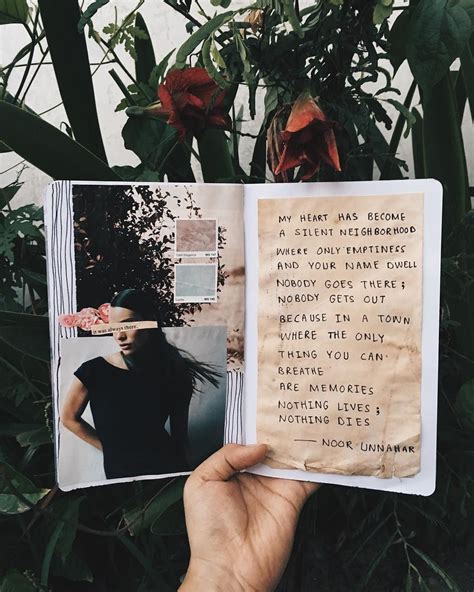 it was always there.
MY HEART HAS BECOME
A SILENT NEIGHBORHOOD
WHERE ONLY EMPTINESS
AND YOUR NAME DWELL
NOBODY GOES THERE;
NOBODY GETS OUT
BECAUSE IN A TOWN
WHERE THE ONLY
THING YOU CAN
BREATHE
ARE MEMORIES
NOTHING LIVES;
NOTHING DIES
— NOOR UNNAHAR